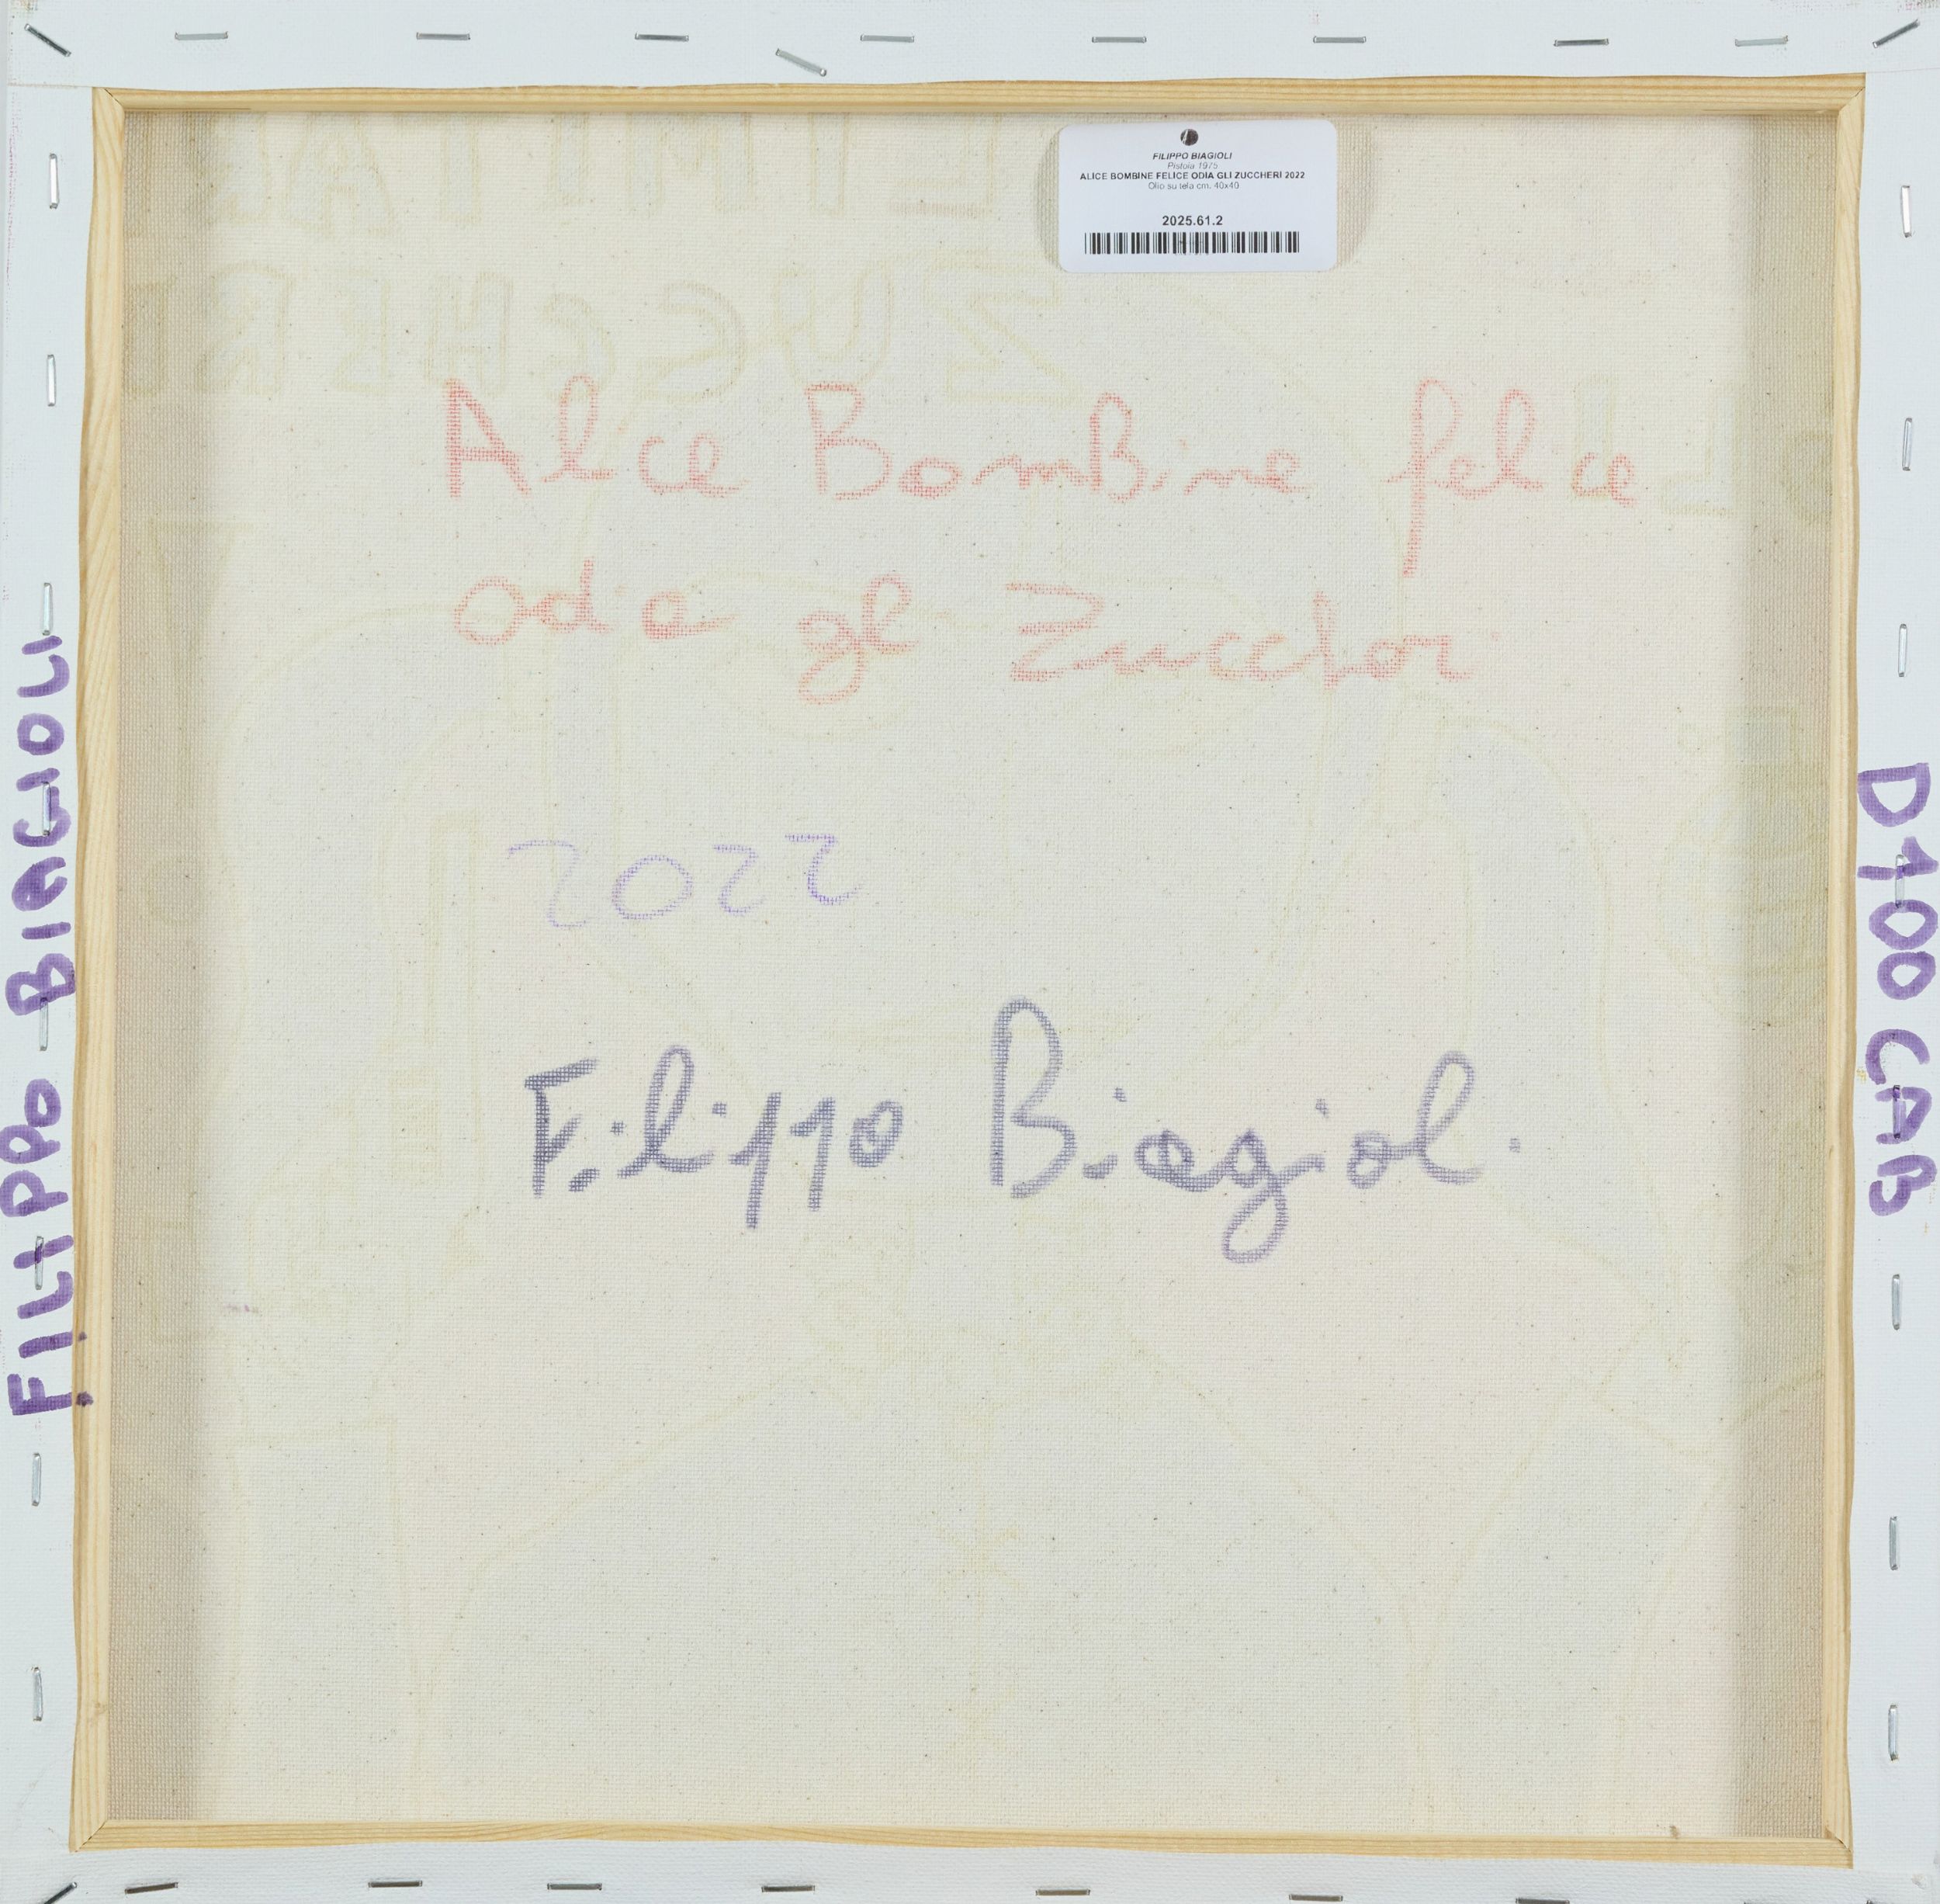 FILIPPO BIAGIOLI
Pistoia 1975
ALICE BOMBINE FELICE ODIA GLI ZUCCHERI 2022
Olio su tela cm. 40x40
2025.61.2
ZUCCHERI
Alice BomBine felice
odia gli Zuccheri
2022
Filippo Biagioli
FILIPPO BIAGIOLI
D100 CAB